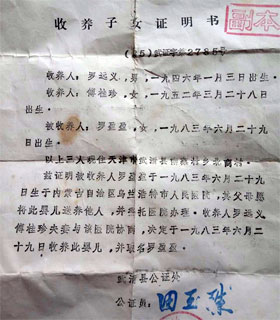 收养子女证明书
副本
(85)武证字第2785号
收养人：罗远义，男，一九四六年一月三日出生。
收养人：傅桂珍，女，一九五二年三月二十八日
出生。
被收养人：罗盈盈，女，一九八三年六月二十九
日出生。
以上三人现住天津市武清县
兹证明被收养人罗盈盈于一九八三年六月二十九
日生于内蒙古自治区乌兰浩特市人民医院，其父母愿
将此婴儿送养他人，并委托医院办理。收养人罗远义
傅桂珍夫妻与该医院协商，决定于一九八三年六月二
十九日收养此婴儿，并取名罗盈盈。
武清县公证处
公证员：田玉璞